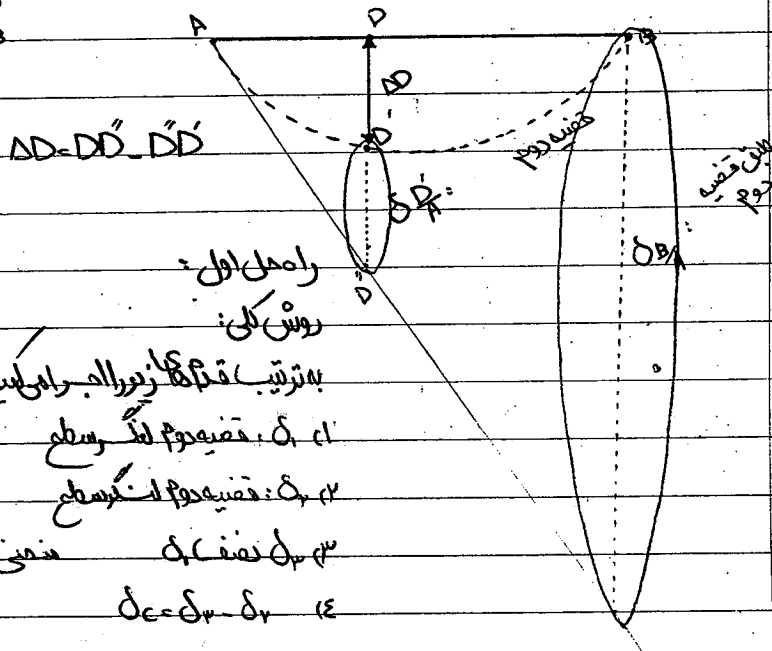 A D B
ΔD
D'
ΔD = DD″ - D″D'
قضیه دوم
طبق قضیه دوم:
δD/A:
δB/A
D″
راه حل اول:
روش کلی:
به ترتیب قدم های زیر را اجرا می کنیم
۱) δ۱: قضیه دوم لنگر سطح
۲) δ۲: قضیه دوم لنگر سطح
۳) δ۳ نصف δ۱
منحنی
۴) δc = δ۳ - δ۲